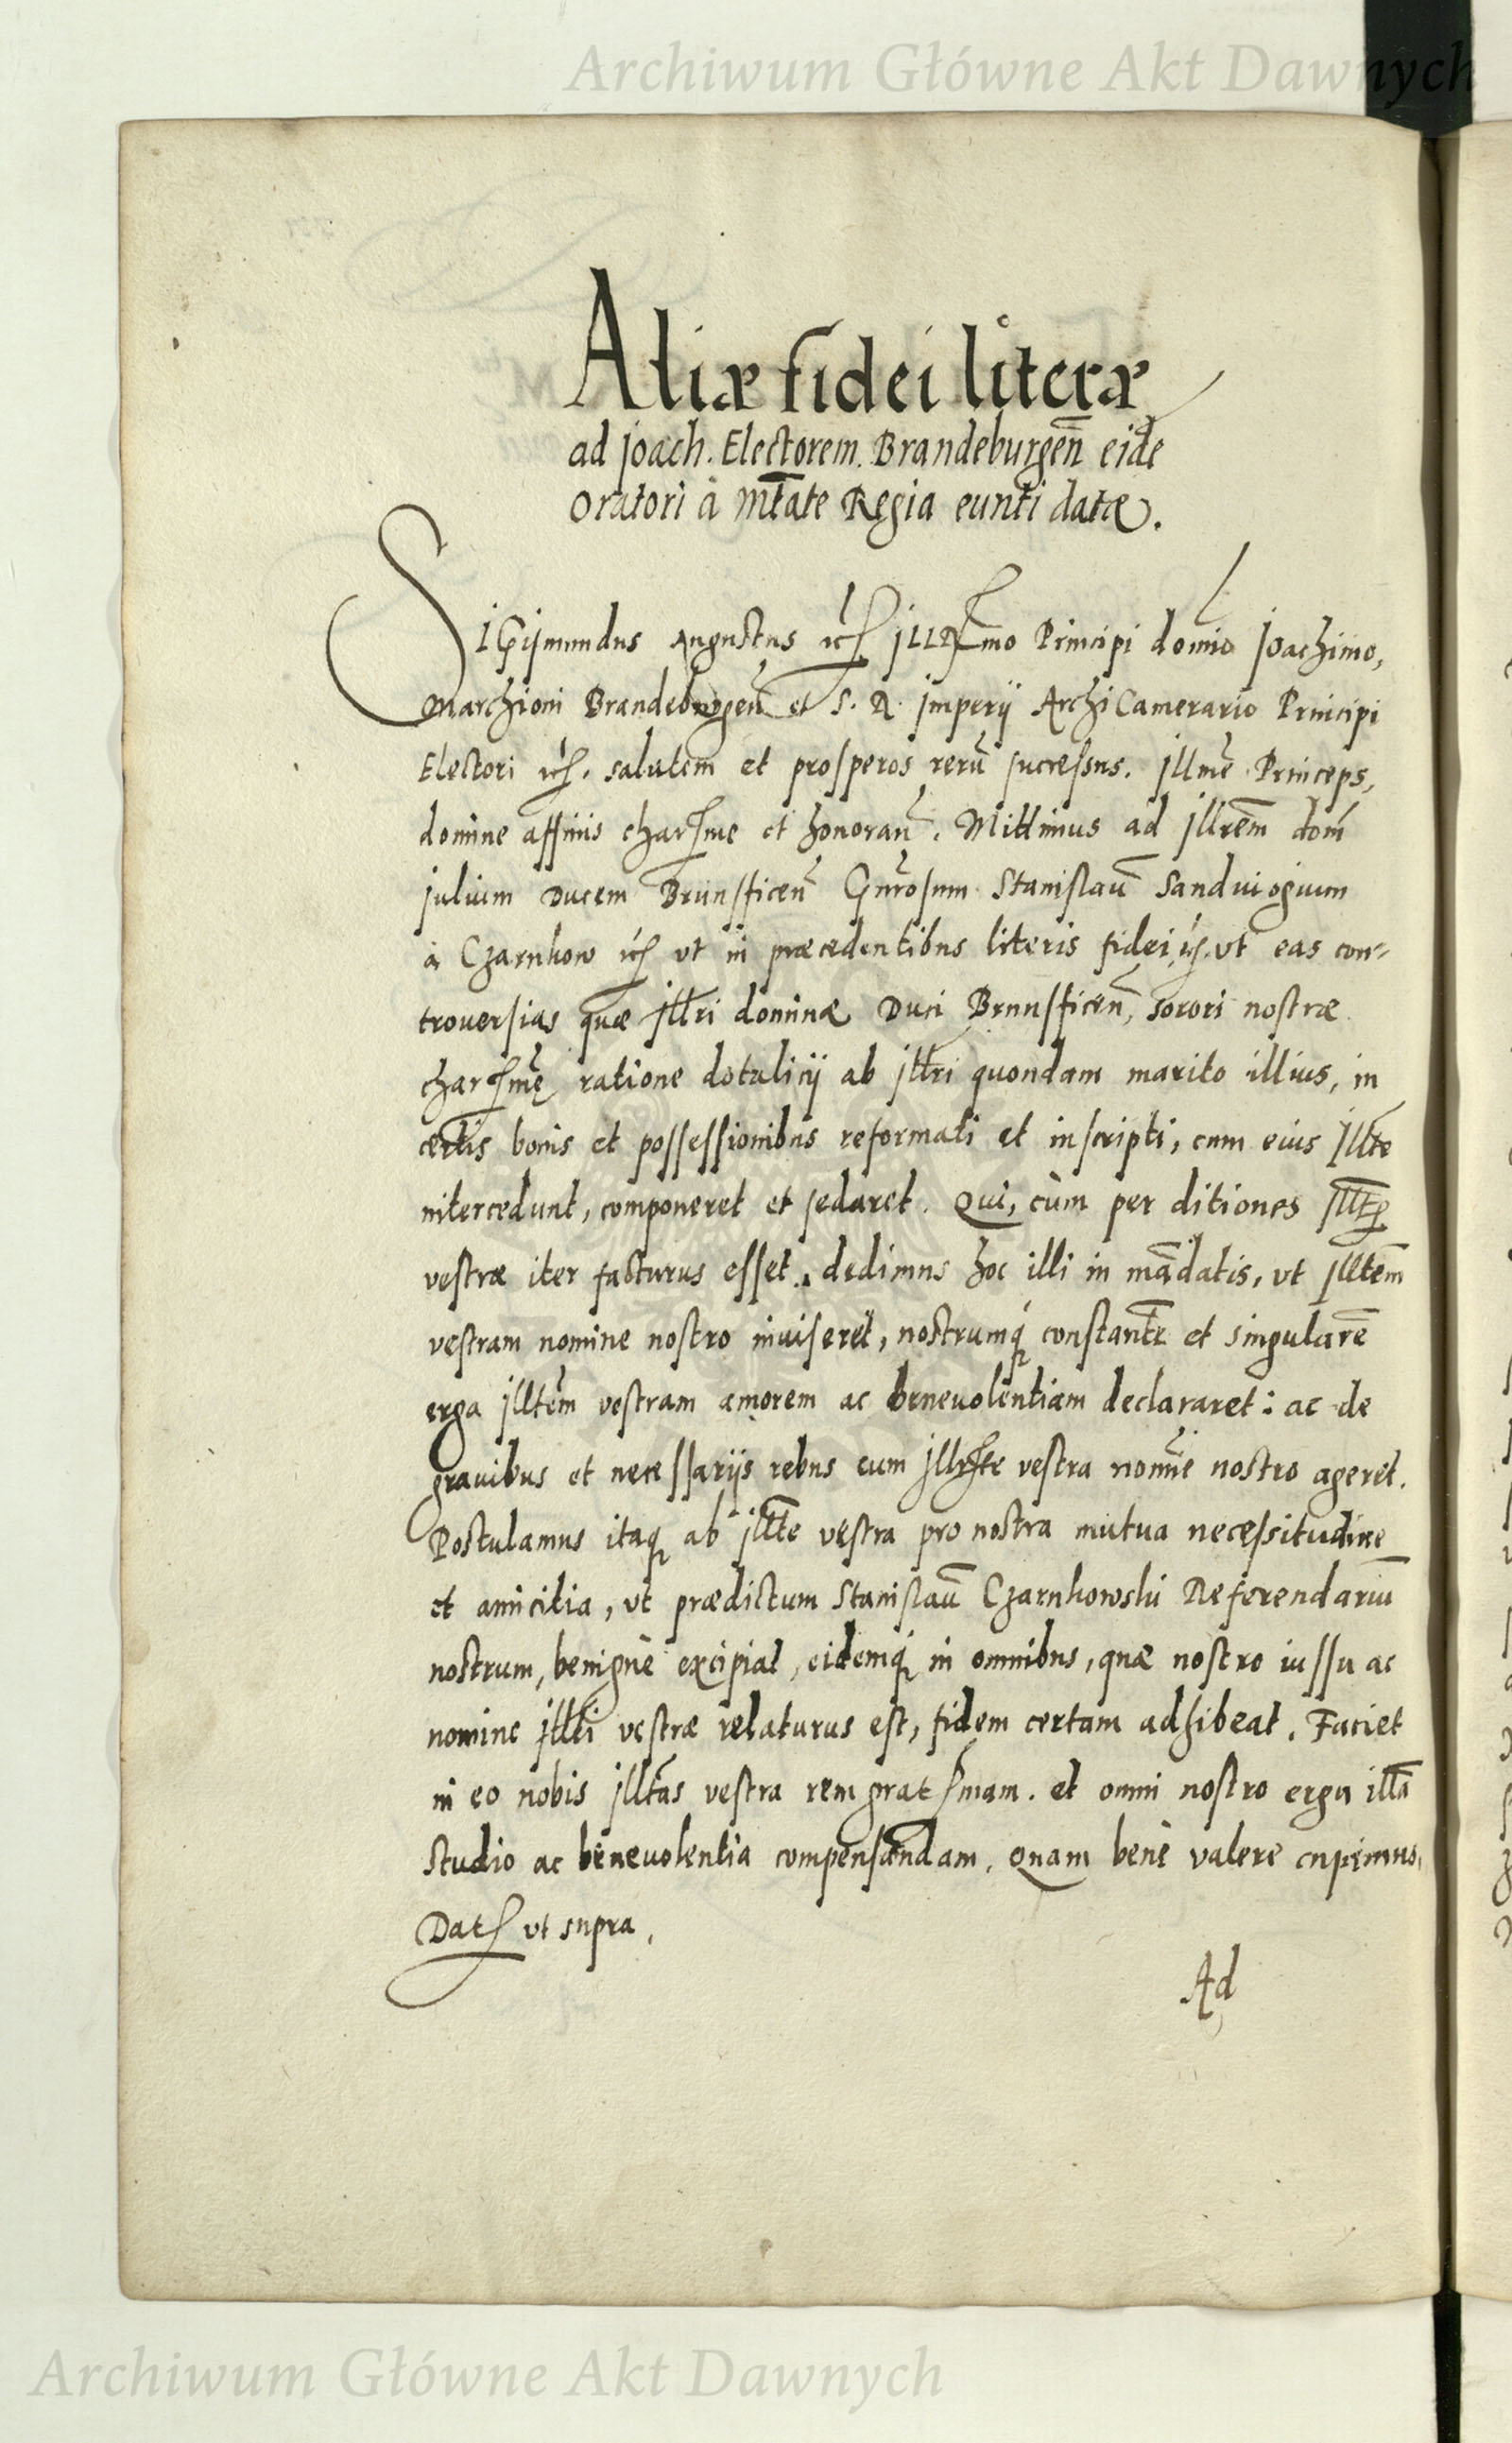 Archiwum Główne Akt Dawnych
Aliæ fidei literæ
ad Joach. Electorem Brandeburgeñ eidē
Oratori à Mtate Regia eunti datæ.
SIGismundus Augustus etc Illrmo Principi domino Joachimo,
Marchioni Brandeburgeñ et S. R. Imperij ArchiCamerario Principi
Electori etc. salutem et prosperos rerū successus. Illme Princeps,
domine affinis charsme et honorañ. Mittimus ad Illrem dom̄
Julium Ducem Brunsficeñ Gnrosum Stanislaū Sandviogium
à Czarnkow etc ut in præcedentibus literis fidei etc. ut eas con-
trouersias quæ Illri dominæ Duci Brunsficeñ, sorori nostræ
charsmę ratione dotalicij ab Illri quondam marito illius, in
certis bonis et possessionibus reformati et inscripti, cum eius Illte
intercedunt, componeret et sedaret. Qui, cùm per ditiones Illtis
vestræ iter facturus esset, dedimus hoc illi in mādatis, ut Illtem
vestram nomine nostro inuiseret, nostrumq́ constantē et singularē
erga Illtem vestram amorem ac beneuolentiam declararet: ac de
grauibus et necessarijs rebus cum Illrste vestra nomīe nostro ageret.
Postulamus itaq ab Illte vestra pro nostra mutua necessitudine
et amicitia, ut prædictum Stanislaū Czarnkowski Referendariū
nostrum, benignè excipiat, eidemq́ in omnibus, quæ nostro iussu ac
nomine Illti vestræ relaturus est, fidem certam adhibeat. Faciet
in eo nobis Illtas vestra rem gratsmam. et omni nostro erga illā
studio ac beneuolentia compensandam. Quam benè valere cupimus.
Dat ut supra.
Ad
Archiwum Główne Akt Dawnych